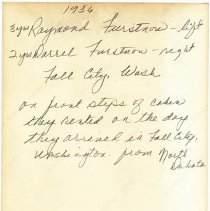 1936
3 yrs Raymond Furstnow - left
2 yrs Darrel Furstnow - right
Fall City, Wash
on front steps of cabin
they rented on the day
they arrived in Fall City,
Washington. from North
Dakota